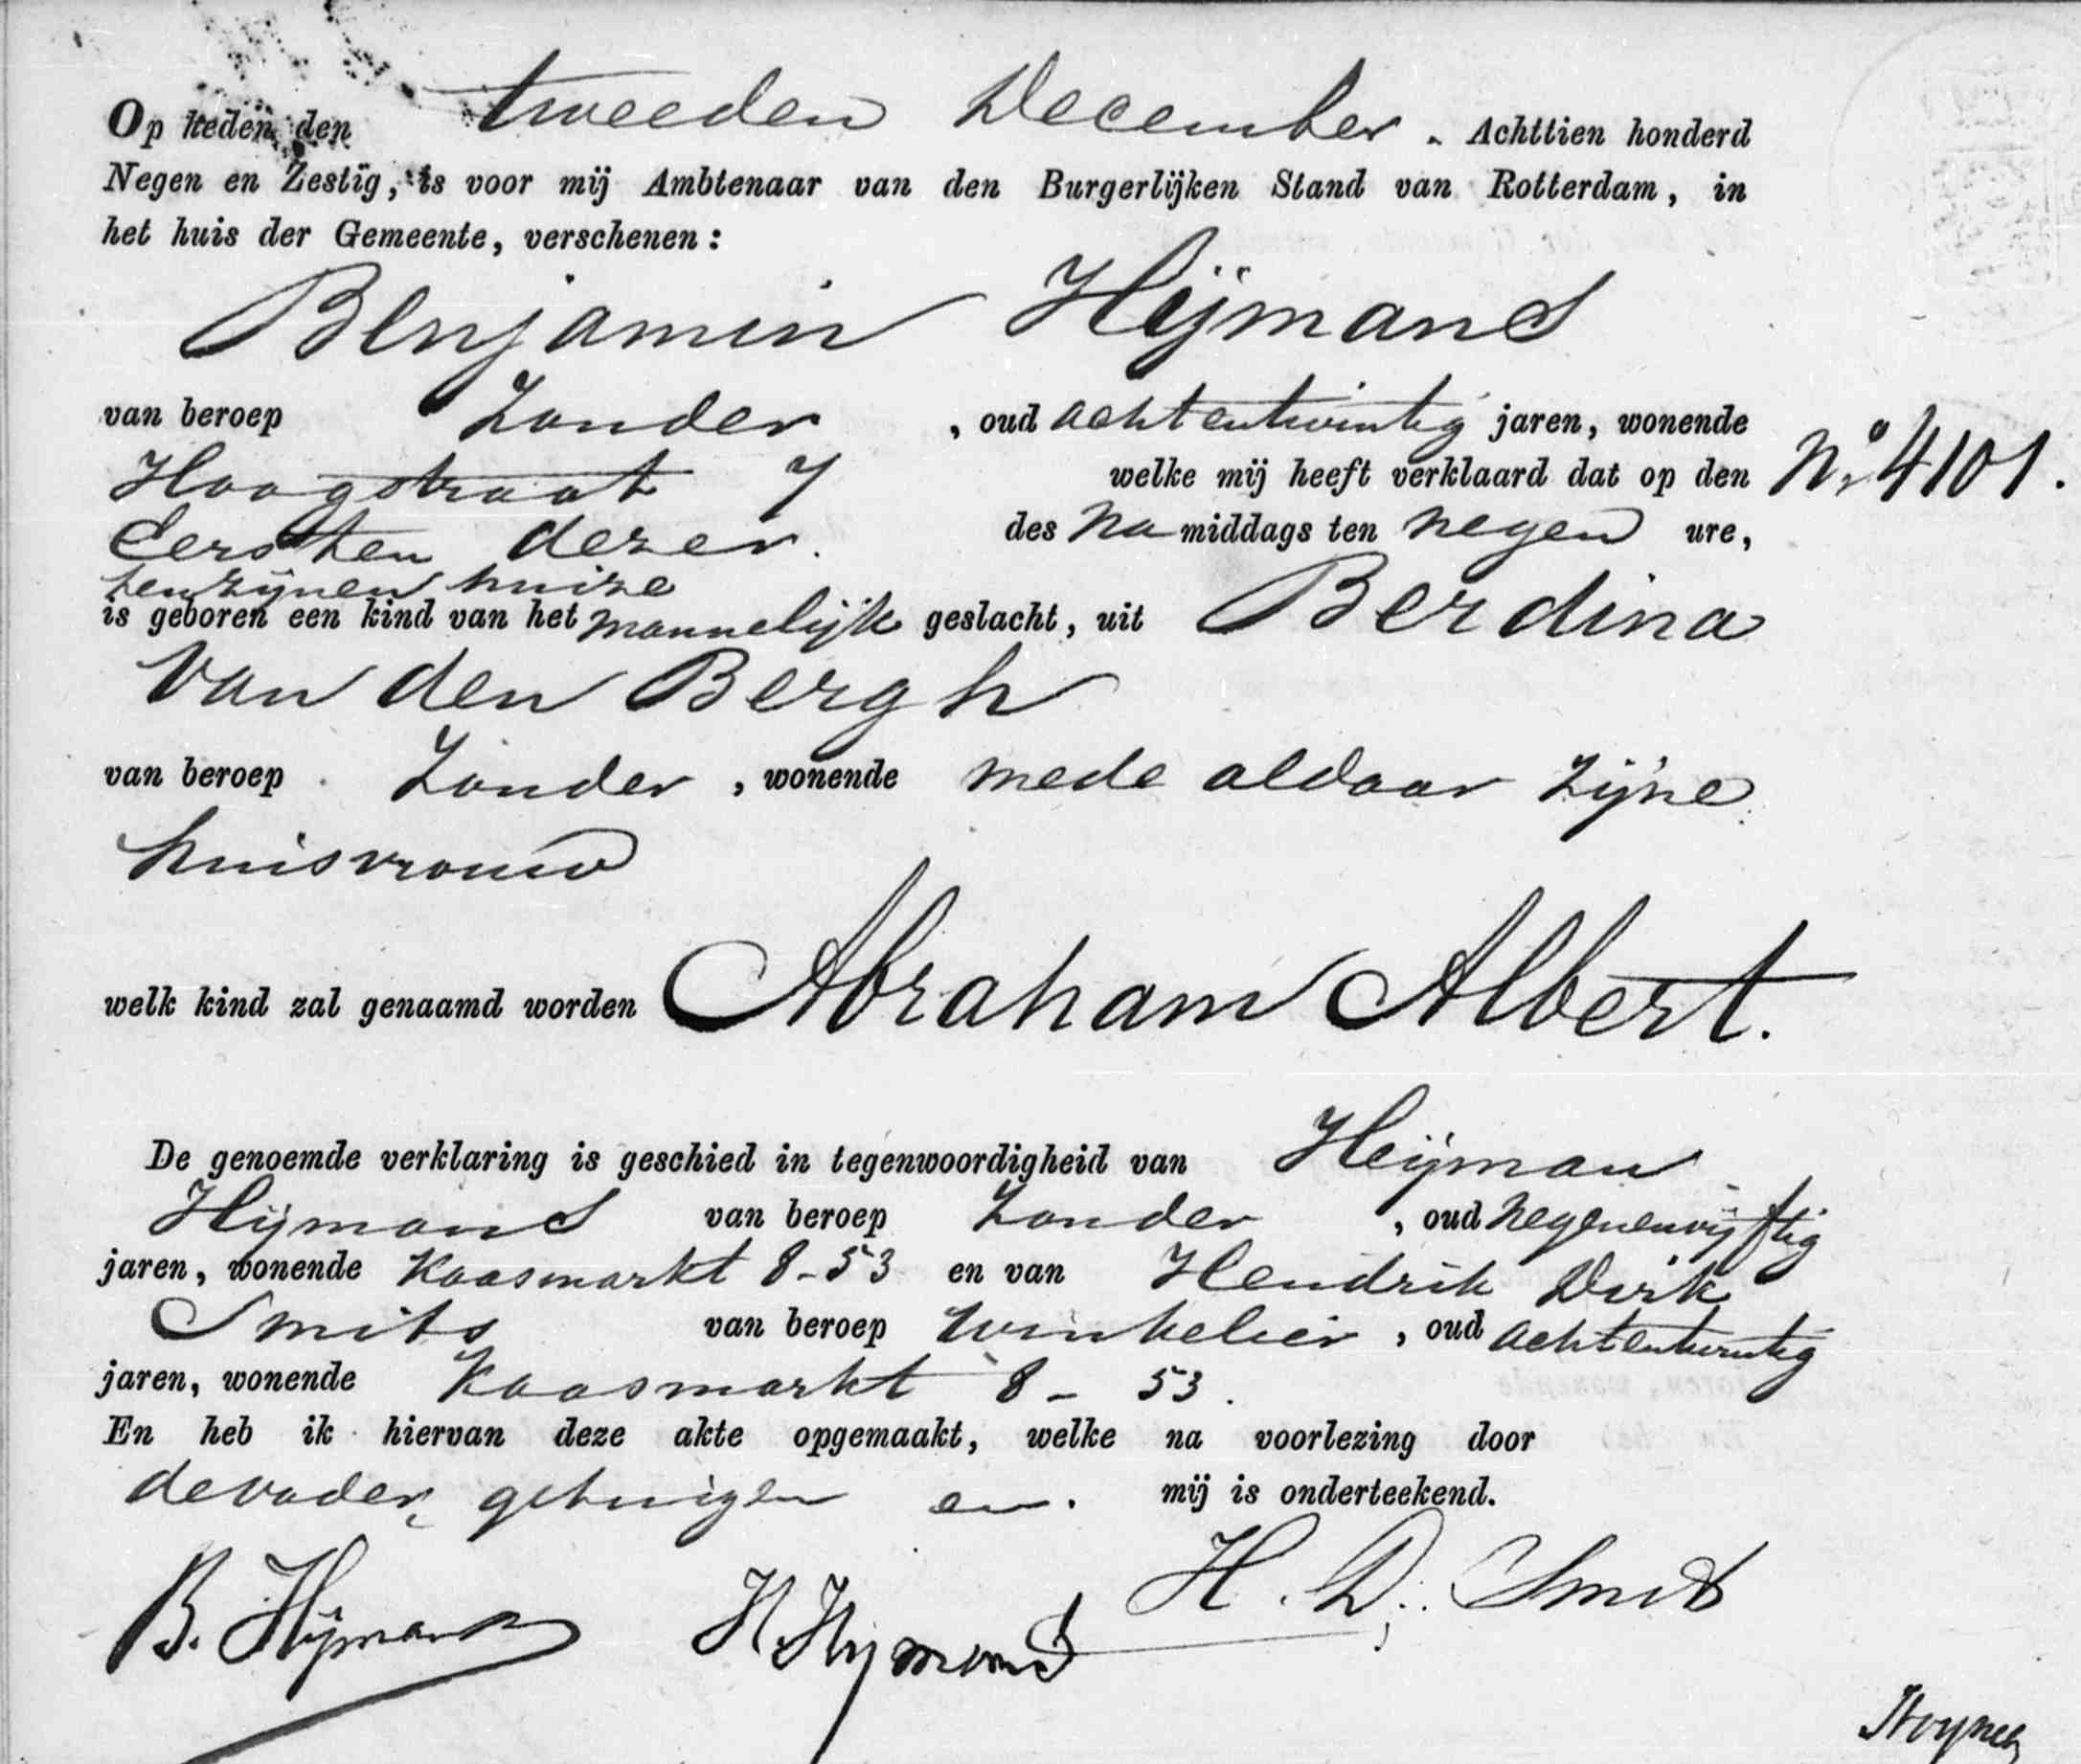 Op heden den tweeden December. Achttien honderd
Negen en Zestig, is voor mij Ambtenaar van den Burgerlijken Stand van Rotterdam, in
het huis der Gemeente, verschenen:
Benjamin Hijmans
van beroep Zonder, oud achtentwintig jaren, wonende
Hoogstraat 7 welke mij heeft verklaard dat op den
No 4101.
Eersten dezer. des namiddags ten negen ure,
ten zijnen huize
is geboren een kind van het mannelijk geslacht, uit Berdina
Van den Bergh
van beroep Zonder, wonende mede aldaar zijne
huisvrouw
welk kind zal genaamd worden Abraham Albert.
De genoemde verklaring is geschied in tegenwoordigheid van Heijman
Hijmans van beroep Zonder, oud negenenvijftig
jaren, wonende Kaasmarkt 8-53 en van Hendrik Dirk
Smits van beroep winkelier, oud achtentwintig
jaren, wonende Kaasmarkt 8-53.
En heb ik hiervan deze akte opgemaakt, welke na voorlezing door
de vader, getuigen en. mij is onderteekend.
B. Hijmans H. Hijmans H. D. Smits